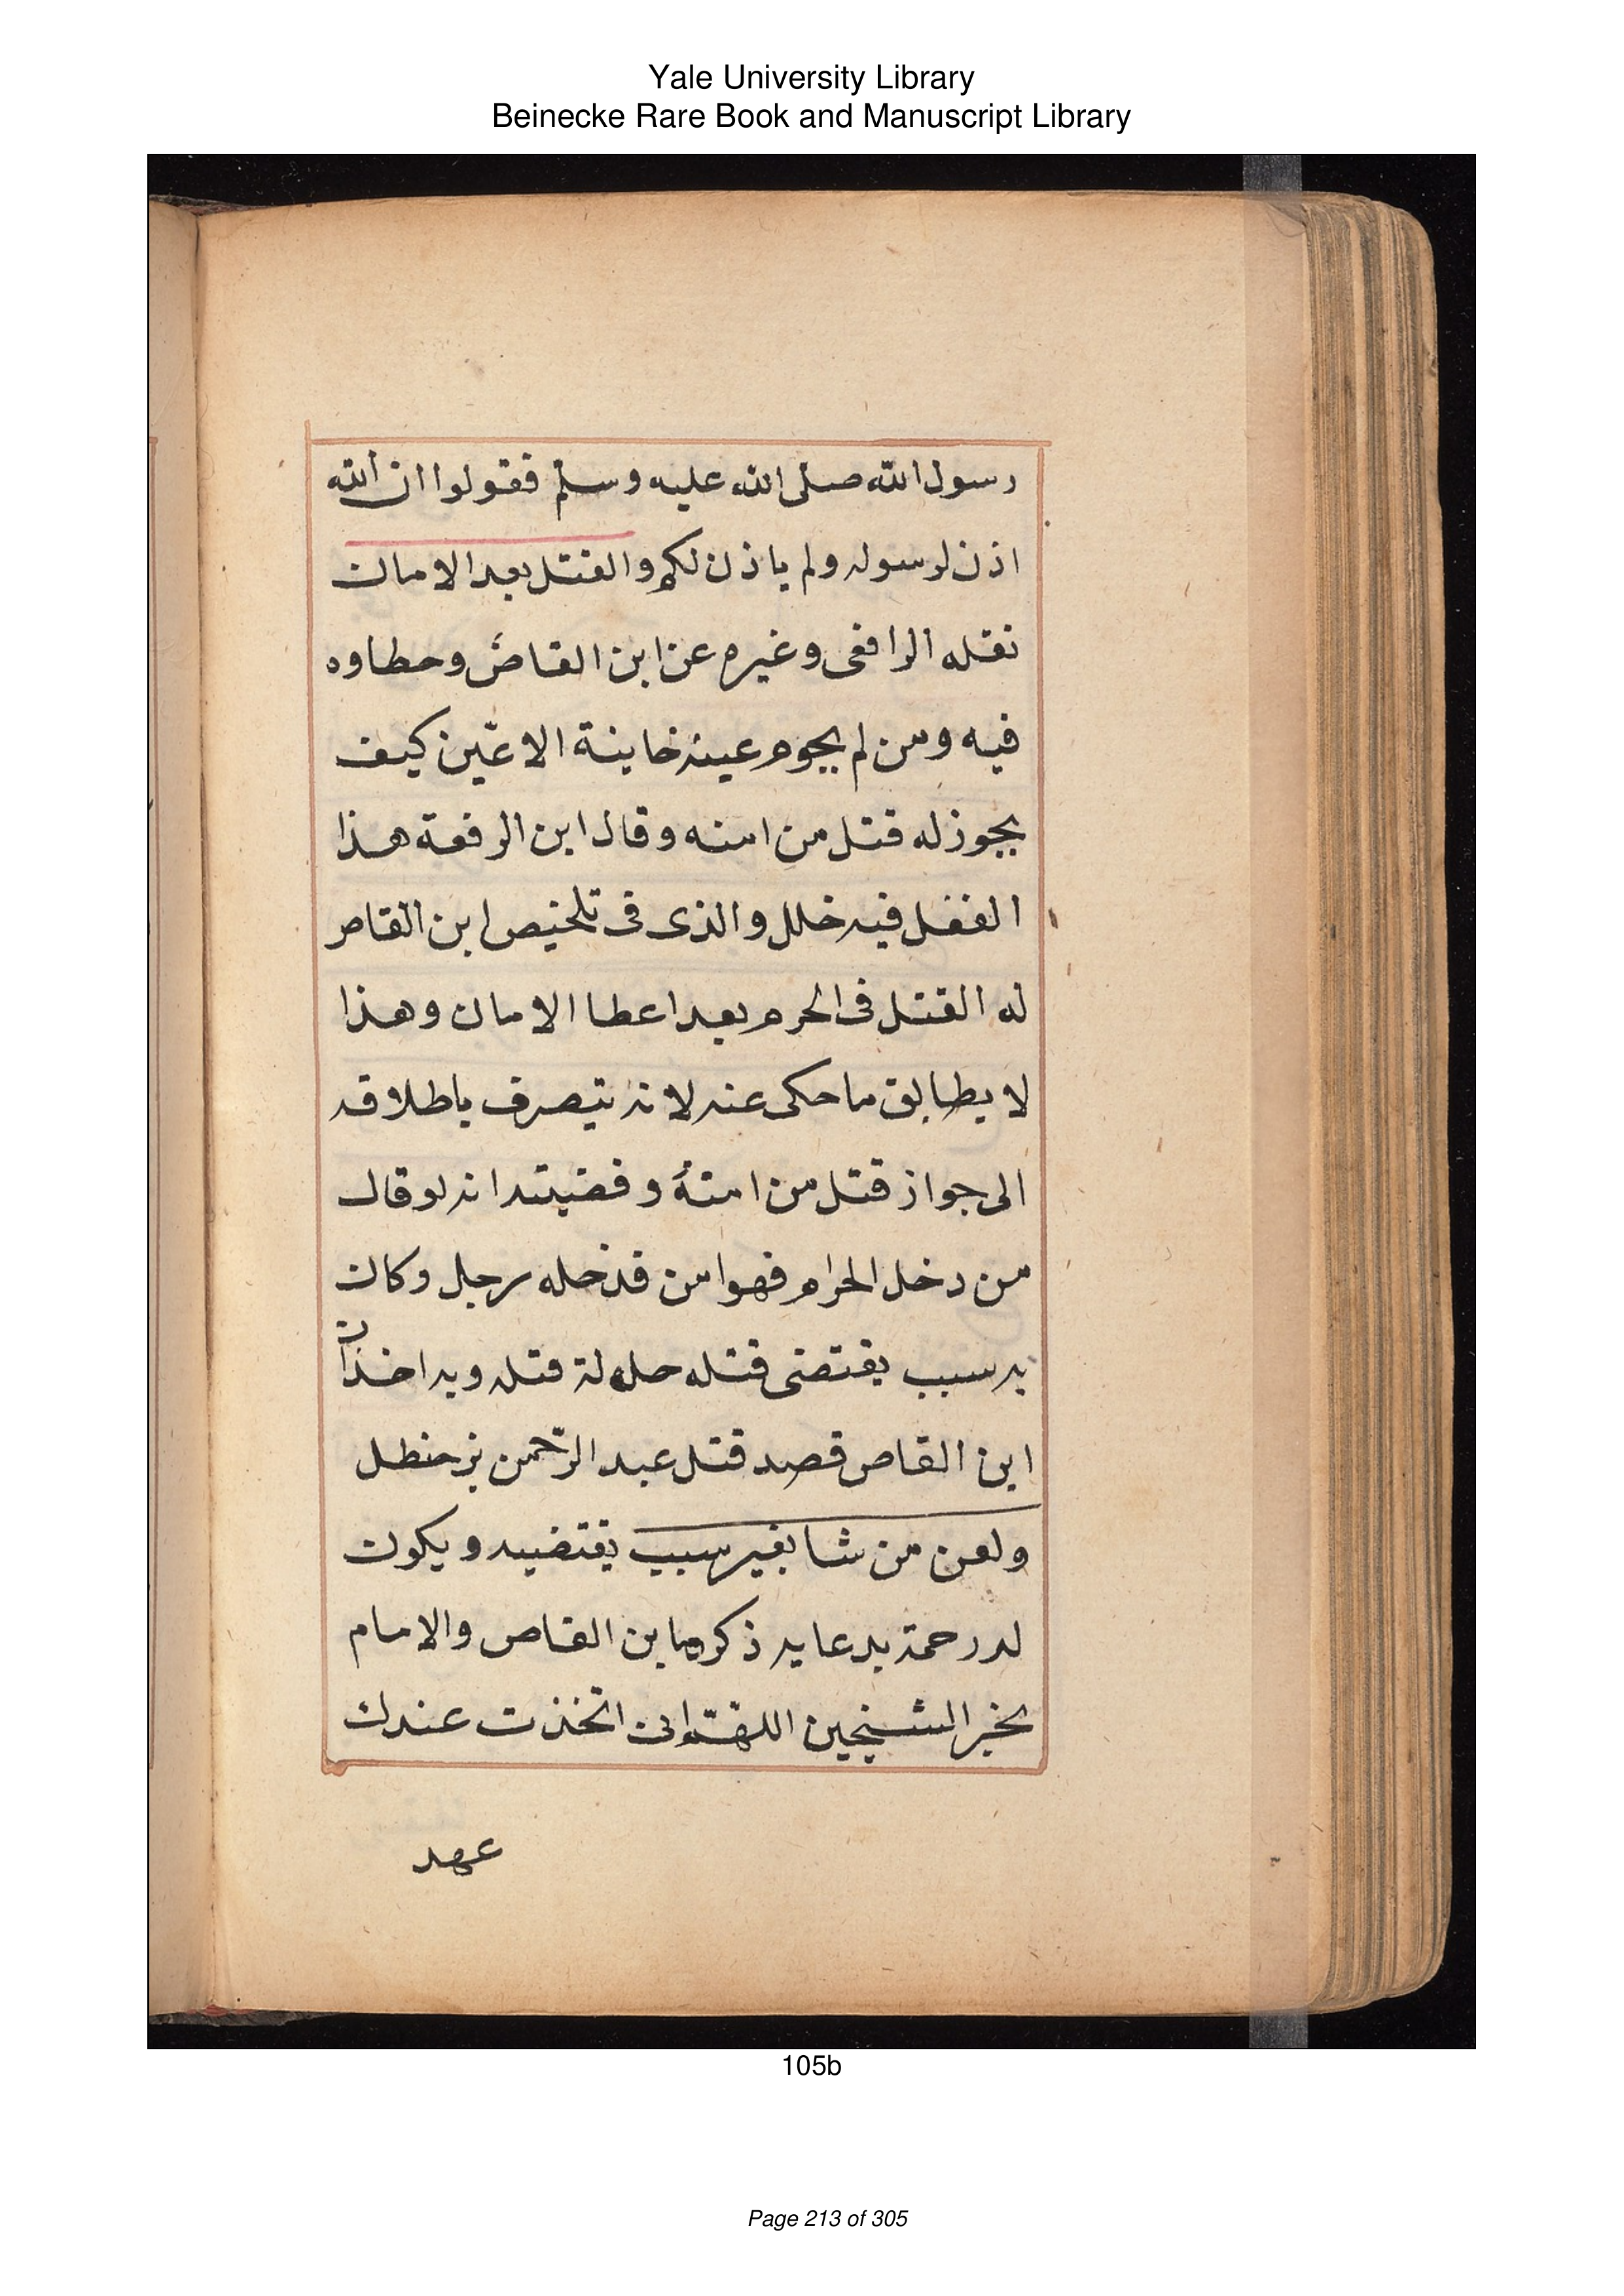 Yale University Library
Beinecke Rare Book and Manuscript Library
رسول الله صلى الله عليه وسلم فقولوا ان الله
اذن لرسوله ولم ياذن لكم والقتل بعد الامان
نقله الرافعى وغيره عن ابن القاص وخطاوه
فيه ومن لم يجوم عينه خاينة الاعين كيف
يجوز له قتل من امنه وقال ابن الرفعة هذا
الفضل فيه خلل والذى فى تلخيص ابن القاص
له القتل فى الحرم بعد اعطا الامان وهذا
لا يطابق ما حكى عنه لانه يتصرف باطلاقه
الى جواز قتل من امنه وقضيته انه لو قال
من دخل الحرام فهو امن فدخله رجل وكان
به سبب يقتضى قتله حل له قتله وبه اخذان
ابن القاص قصد قتل عبد الرحمن بن حنظل
ولعن من شا بغير سبب يقتضيه ويكون
له رحمة بدعايه ذكرهما بن القاص والامام
بخبر الشيخين اللهم انى اتخذت عندك
عهد
105b
Page 213 of 305